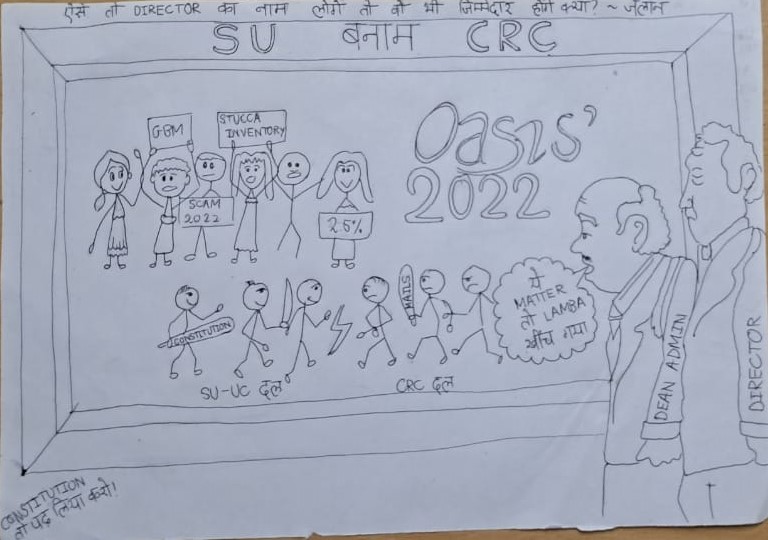 ऐसे तो DIRECTOR का नाम लोगे तो वो भी जिम्मेदार होंगे क्या? ~ जलान
SU बनाम CRC
GBM
STUCCA
INVENTORY
SCAM
2022
25%
Oasis'
2022
CONSTITUTION
MAILS
SU-UC दल
CRC दल
ये
MATTER
तो LAMBA
खींच गया
DEAN ADMIN
DIRECTOR
CONSTITUTION
तो पढ़ लिया करो!